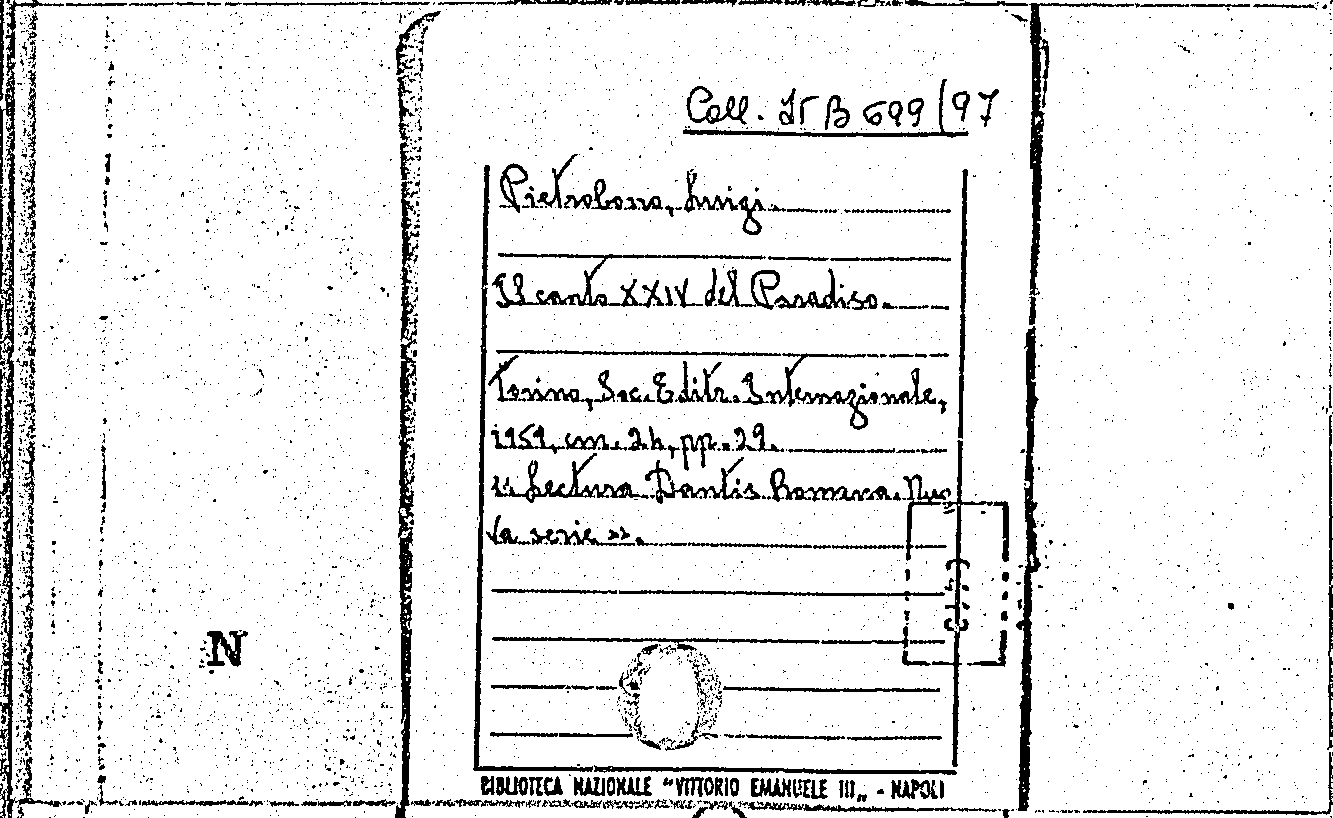 Coll. IT B 699/97
Pietrobono, Luigi.
Il canto XXIV del Paradiso.
Torino, Soc. Editr. Internazionale,
1959, cm. 24, pp. 29.
« Lectura Dantis Romana. Nuo
va serie ».
N
BIBLIOTECA NAZIONALE "VITTORIO EMANUELE III„ - NAPOLI